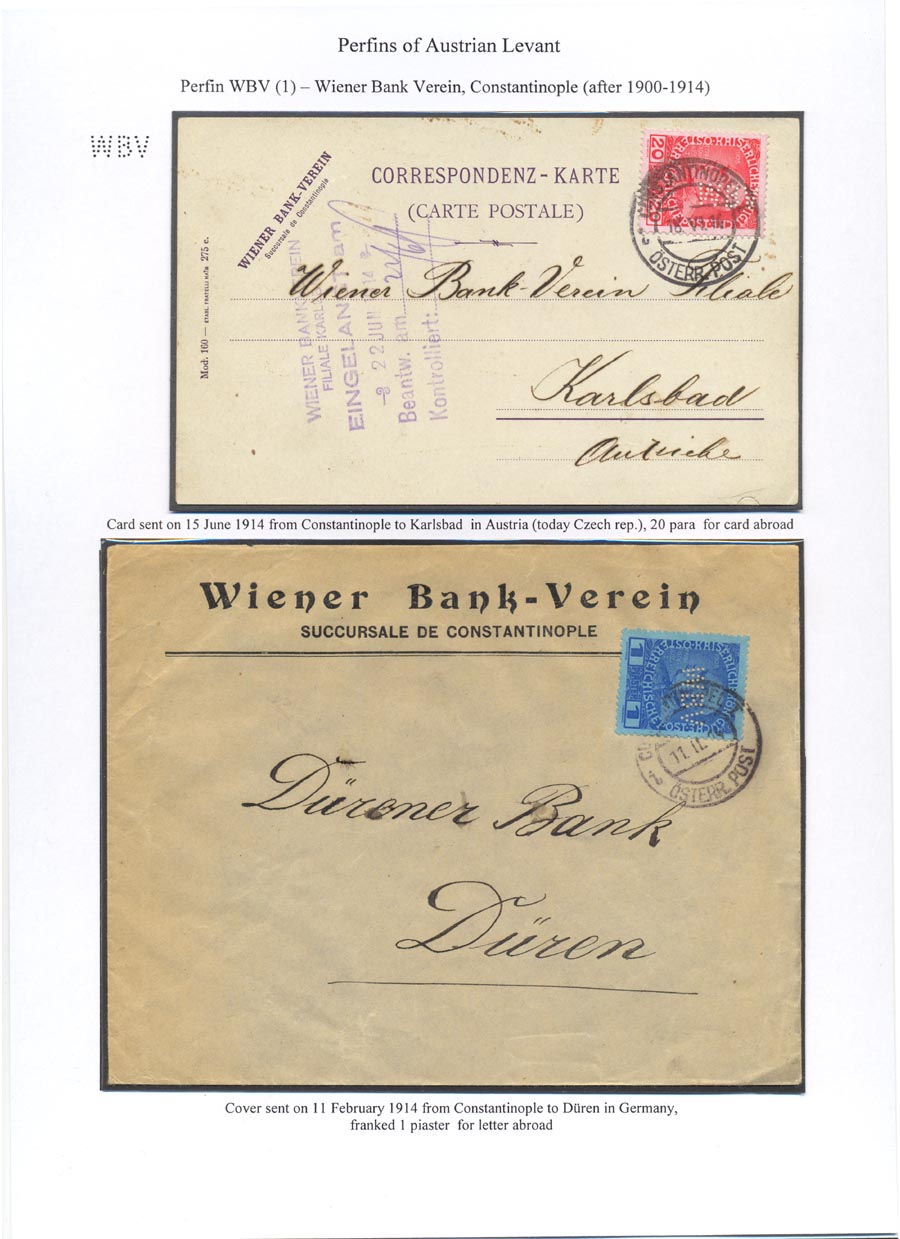 Perfins of Austrian Levant
Perfin WBV (1) – Wiener Bank Verein, Constantinople (after 1900-1914)
WBV
WIENER BANK-VEREIN
Succursale de Constantinople
CORRESPONDENZ-KARTE
(CARTE POSTALE)
20
ÖSTERR. POST
Mod. 160 — 275 c.
WIENER BANK-VEREIN
FILIALE KARLSBAD
EINGELANGT am
22 JUN
Beantw. am
Kontrolliert:
Wiener Bank-Verein Filiale
Karlsbad
Autriche
Card sent on 15 June 1914 from Constantinople to Karlsbad in Austria (today Czech rep.), 20 para for card abroad
Wiener Bank-Verein
SUCCURSALE DE CONSTANTINOPLE
1 1
WBV
11. II.
ÖSTERR. POST
Dürener Bank
Düren
Cover sent on 11 February 1914 from Constantinople to Düren in Germany,
franked 1 piaster for letter abroad